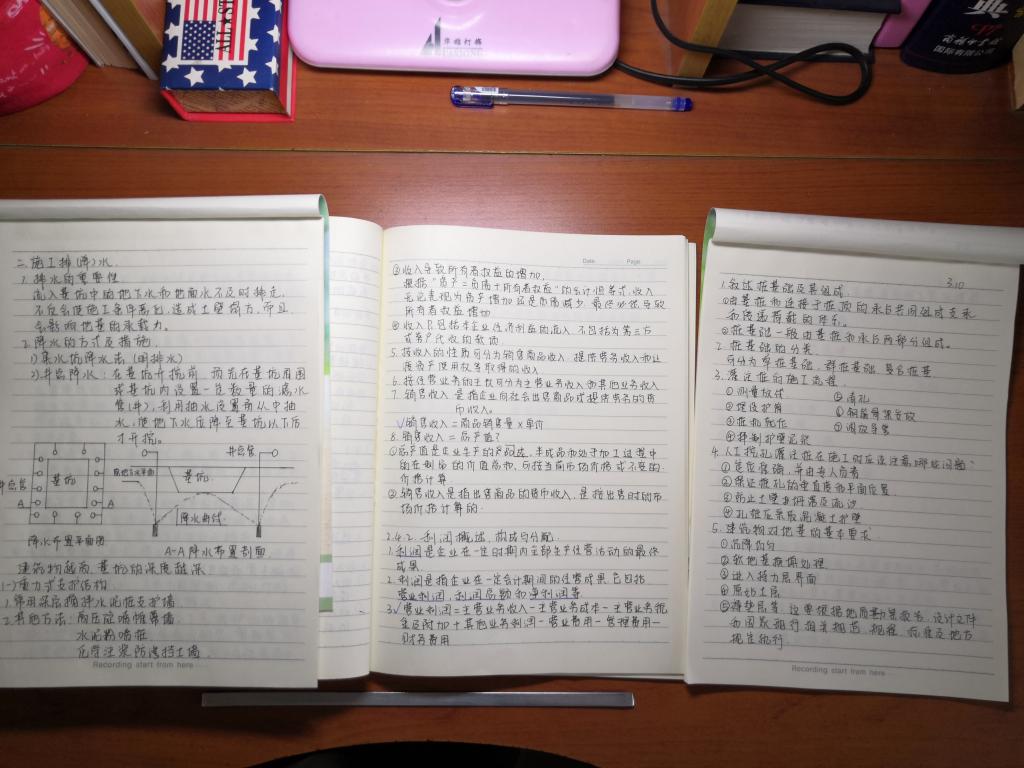 ALL STAR
华雄灯饰
国际有限公司
二.施工排(降)水.
1.排水的重要性
流入基坑中的地下水和地面水不及时排走,
不仅会使施工条件恶化,造成土壁塌方,而且
会影响地基的承载力。
2.降水的方式及措施.
1)集水坑降水法(明排水)
2)井点降水:在基坑开挖前,预先在基坑周围
或基坑内设置一定数量的滤水
管(井),利用抽水设备从中抽
水,使地下水位降至基坑以下后
才开挖。
井点管
基坑
A
A
降水布置平面图
井点管
原地下水平面
基坑
降水曲线
A-A降水布置剖面
建筑物越高,基坑的深度越深
(一)重力式支护结构
1.常用深层搅拌水泥桩支护墙
2.其他方法:高压旋喷帷幕墙
水泥粉喷桩
化学注浆防渗挡土墙
Recording start from here
Date: Page:
③收入导致所有者权益的增加,
根据"资产=负债+所有者权益"的会计恒等式,收入
无论表现为资产增加还是负债减少,最终必然导致
所有者权益增加
④收入只包括本企业经济利益的流入,不包括为第三方
或客户代收的款项.
5.按收入的性质可分为销售商品收入,提供劳务收入和让
渡资产使用权等取得的收入
6.按经营业务的主次可分为主营业务收入和其他业务收入
7.销售收入是指企业向社会出售商品或提供劳务的货
币收入。
√销售收入=商品销售量×单价
8.销售收入=总产值?
①总产值是企业生产的产成品,半成品和处于加工过程中
的在制品的价值总和,可按当前市场价格或不变的
价格计算
②销售收入是指出售商品的货币收入,是按出售时的市
场价格计算的.
2.4.2.利润概述,构成与分配.
1.利润是企业在一定时期内全部生产经营活动的最终
成果.
2.利润是指企业在一定会计期间的经营成果.它包括
营业利润,利润总额和净利润等
3.√营业利润=主营业务收入-主营业务成本-主营业务税
金及附加+其他业务利润-营业费用-管理费用-
财务费用
3.10
1.叙述桩基础及其组成.
①由基桩和连接于桩顶的承台共同组成支承
和传递荷载的件.
②桩基础一般由基桩和承台两部分组成。
2.桩基础的分类.
可分为单桩基础,群桩基础,复合桩基
3.灌注桩的施工流程.
①测量放线 ⑤清孔
②埋设护筒 ⑥钢筋骨架安放
③桩机就位 ⑦调放导管
④拌制护壁泥浆
4.人工挖孔灌注桩在施工时应该注意哪些问题?
①定位准确,并由专人负责
②保证桩孔的垂直度和平面位置
③防止土壁坍落及流沙
④孔桩应采取混凝土护壁
5.建筑物对地基的基本要求
①沉降均匀
②软地基换填处理
③进入持力层界面
④原始土层
⑤褥垫层等,这要根据地质勘察报告,设计文件
和国家现行相关规范,规程,标准及地方
规定执行.
Recording start from here